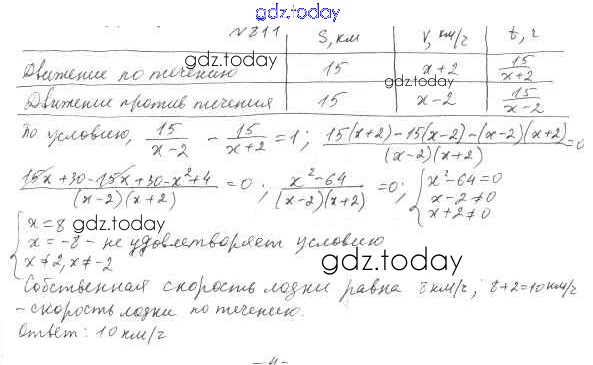 gdz.today
№811 S, км V, км/г t, г
gdz.today
Движение по течению 15 x+2 15/(x+2)
gdz.today
Движение против течения 15 x-2 15/(x-2)
По условию, 15/(x-2) - 15/(x+2) = 1; (15(x+2)-15(x-2)-(x-2)(x+2))/((x-2)(x+2)) = 0
(15x+30-15x+30-x²+4)/((x-2)(x+2)) = 0; (x²-64)/((x-2)(x+2)) = 0; { x²-64=0
x-2≠0
x+2≠0
{ x=8 gdz.today
x=-8 - не удовлетворяет условию
x≠2, x≠-2
gdz.today
Собственная скорость лодки равна 8 км/г; 8+2=10 км/г
- скорость лодки по течению.
Ответ: 10 км/г
-4-